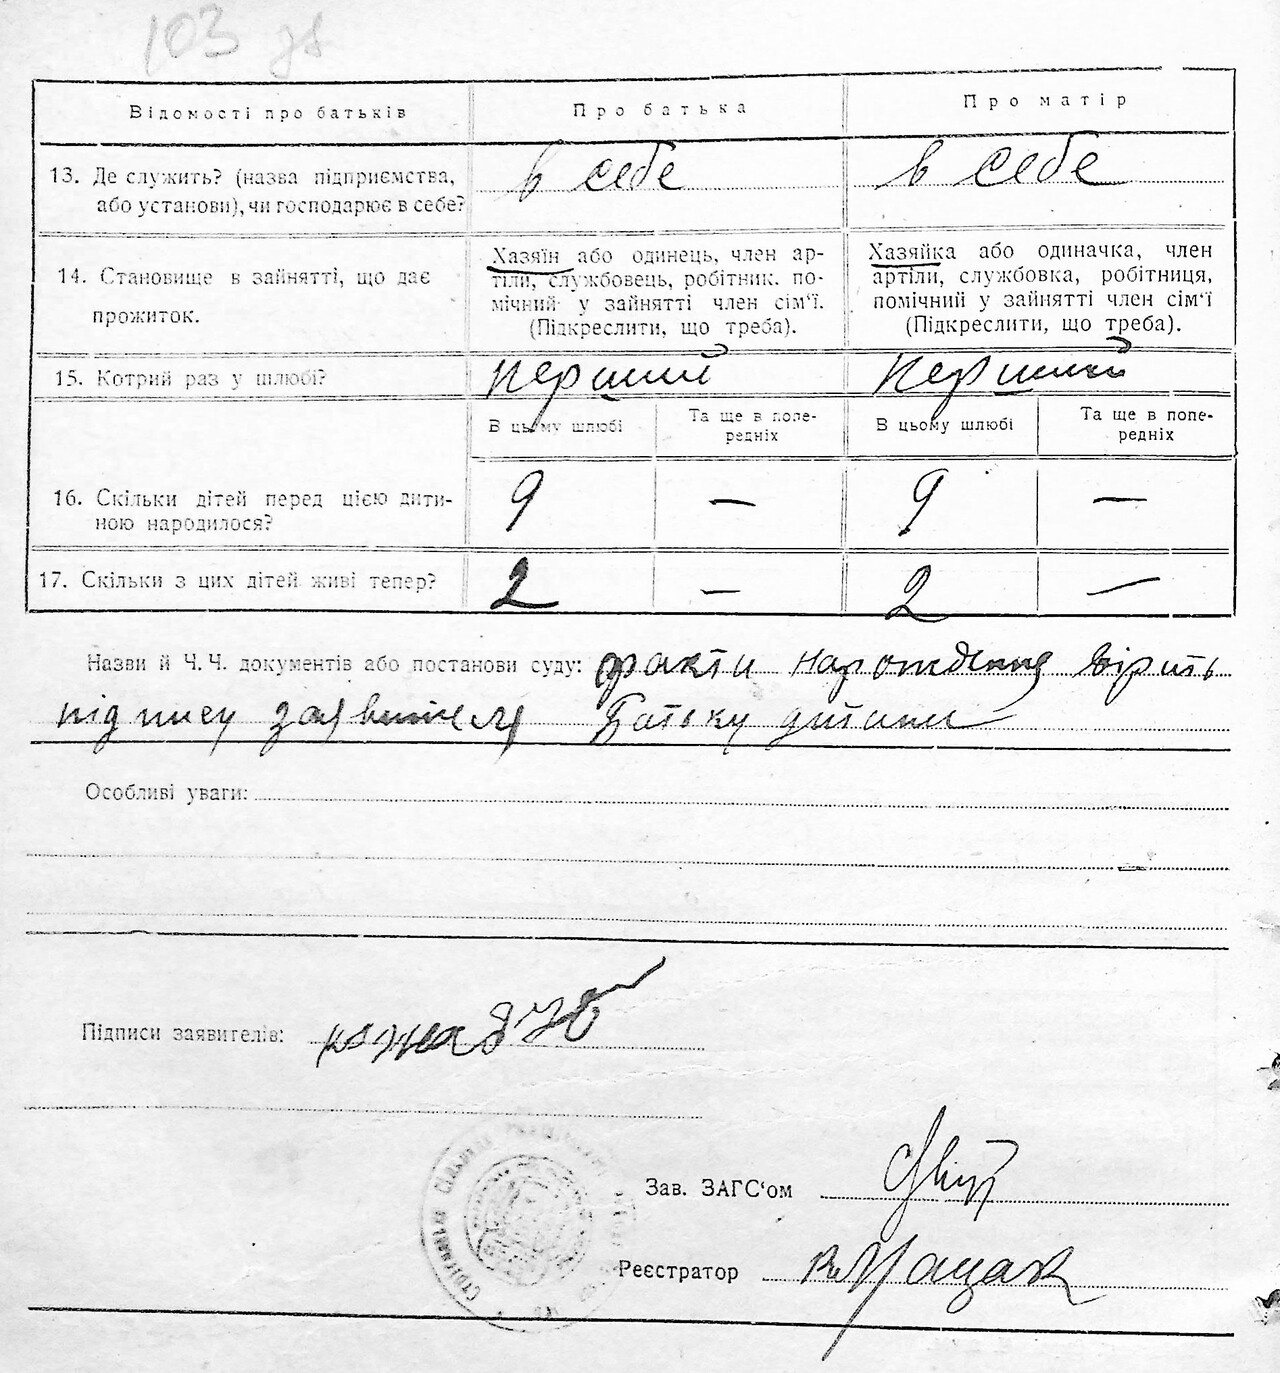 103
Відомості про батьків
Про батька
Про матір
13. Де служить? (назва підприємства,
або установи), чи господарює в себе?
в себе
в себе
14. Становище в зайнятті, що дає
прожиток.
Хазяїн або одинець, член ар-
тіли, службовець, робітник. по-
мічний у зайнятті член сім'ї.
(Підкреслити, що треба).
Хазяйка або одиначка, член
артіли, службовка, робітниця,
помічний у зайнятті член сім'ї
(Підкреслити, що треба).
15. Котрий раз у шлюбі?
перший
перший
В цьому шлюбі
Та ще в попе-
редніх
В цьому шлюбі
Та ще в попе-
редніх
16. Скільки дітей перед цією дити-
ною народилося?
9
—
9
—
17. Скільки з цих дітей живі тепер?
2
—
2
—
Назви й Ч. Ч. документів або постанови суду: факти народження вірить
підпису заявителя батьку дитини
Особливі уваги:
Підписи заявителів:
Зав. ЗАГС'ом
Реєстратор